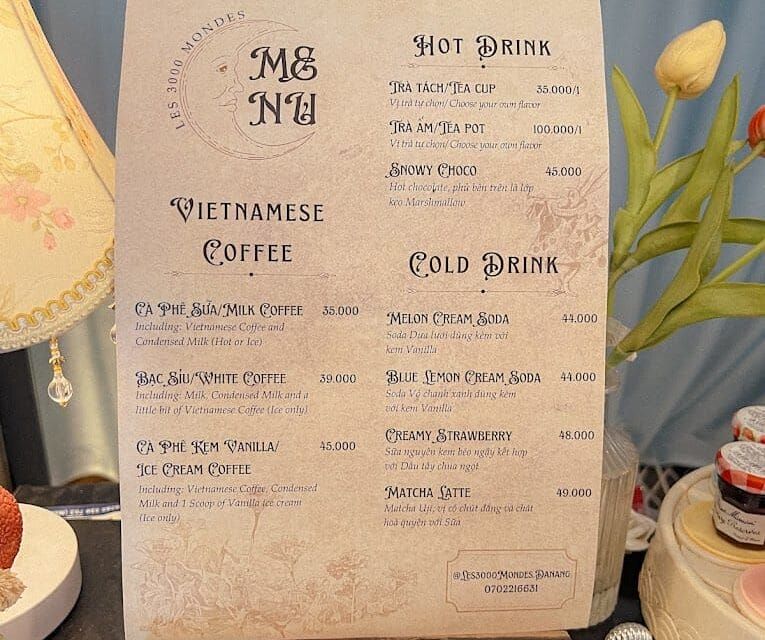 LES 3000 MONDES
ME
NU
VIETNAMESE
COFFEE
CÀ PHÊ SỮA/MILK COFFEE 35.000
Including: Vietnamese Coffee and
Condensed Milk (Hot or Ice)
BẠC SỈU/WHITE COFFEE 39.000
Including: Milk, Condensed Milk and a
little bit of Vietnamese Coffee (Ice only)
CÀ PHÊ KEM VANILLA/ 45.000
ICE CREAM COFFEE
Including: Vietnamese Coffee, Condensed
Milk and 1 Scoop of Vanilla ice cream
(Ice only)
HOT DRINK
TRÀ TÁCH/TEA CUP 35.000/1
Vị trà tự chọn/ Choose your own flavor
TRÀ ẤM/TEA POT 100.000/1
Vị trà tự chọn/ Choose your own flavor
SNOWY CHOCO 45.000
Hot chocolate, phủ bên trên là lớp
kẹo Marshmallow
COLD DRINK
MELON CREAM SODA 44.000
Soda Dưa lưới dùng kèm với
kem Vanilla
BLUE LEMON CREAM SODA 44.000
Soda Vỏ chanh xanh dùng kèm
với kem Vanilla
CREAMY STRAWBERRY 48.000
Sữa nguyên kem béo ngậy kết hợp
với Dâu tây chua ngọt
MATCHA LATTE 49.000
Matcha Uji, vị có chút đắng và chát
hoà quyện với Sữa
@LES3000MONDES.DANANG
0702216631